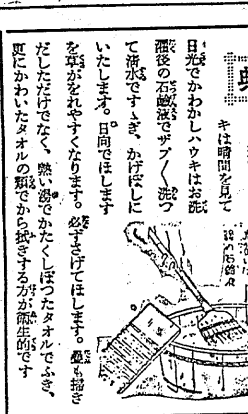 キは時間を見て
日光でかわかしハウキはお洗
濯後の石鹸液でザブ〳〵洗つ
て清水ですゝぎ、かげぼしに
いたします。日向でほします
と草がをれやすくなります。必ずさげてほします。畳も掃き
だしただけでなく、熱い湯でかたくしぼつたタオルでふき、
更にかわいたタオルの類でから拭きする方が衛生的です